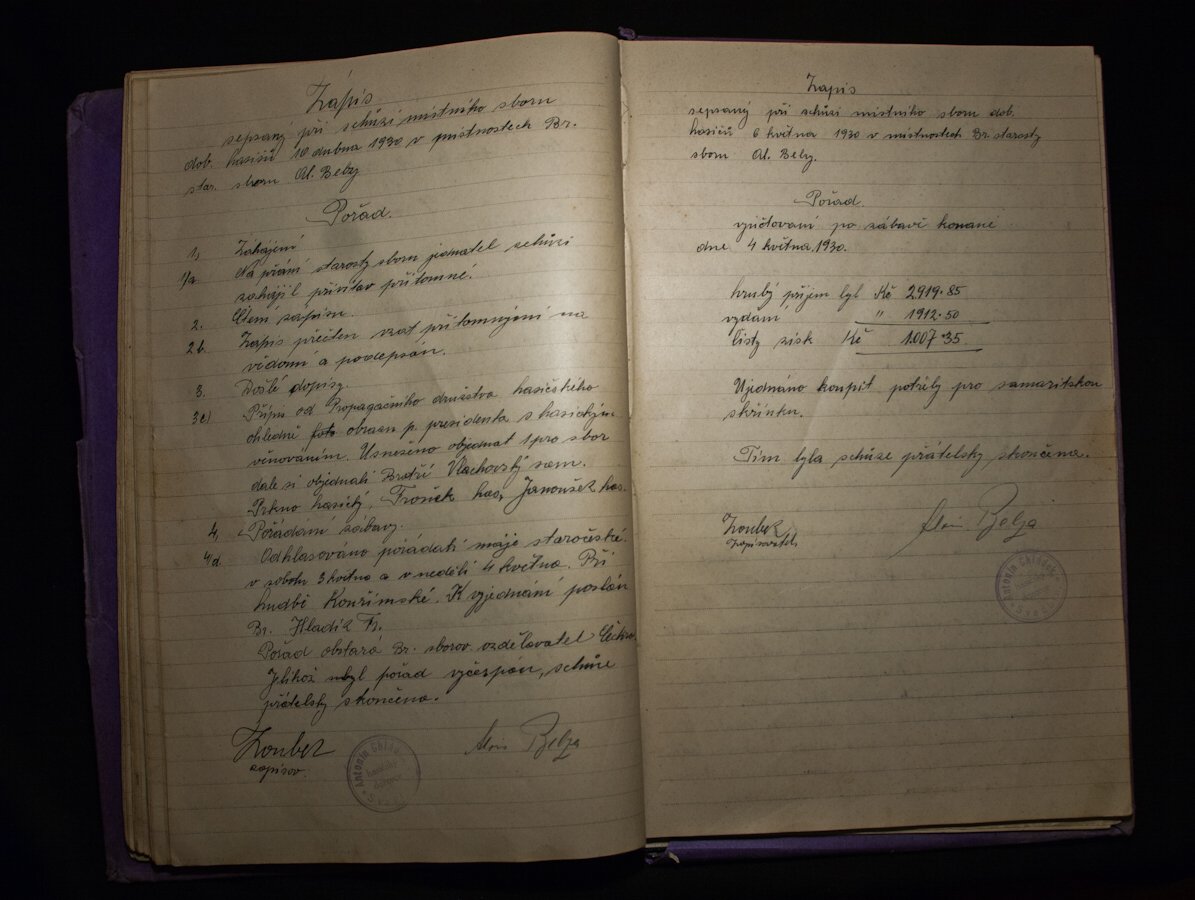 Zápis
sepsaný při schůzi místního sboru
dob. hasičů 10 dubna 1930 v místnostech Br.
star. sboru Al. Belzy
Pořad.
1, Zahájení
1/a Na přání starosty sboru jednatel schůzi
zahájil přivítav přítomné.
2. Čtení zápisu.
2 b. Zápis přečten vzat přítomnými na
vědomí a podepsán.
3. Došlé dopisy.
3 c) Přípis od Propagačního družstva hasičského
ohledně foto obrazu p. presidenta s hasickým
věnováním. Usneseno objednat 1 pro sbor
dale si objednali Bratří Vlachovský sam.
Prkno hasický, Frouěk has, Janoušek has.
4, Pořádaní zábavy.
4/d Odhlasováno pořádati máje staročeské.
v sobotu 3 května a v neděli 4 května. Při
hudbě Kouřimské. K vyjednání poslán
Br. Hladík Fr.
Pořad obstará Br. sborov. vzdělavatel
Jelikož byl pořad vyčerpán, schůze
přátelsky skončena.
Zoubek
zapisov.
Alois Belza
Antonín Chlád
hasičský
Zápis
sepsaný při schůzi místního sboru dob.
hasičů 6 května 1930 v místnostech Br. starosty
sboru Al. Belzy.
Pořad.
vyúčtovaní po zábavě konané
dne 4 května 1930.
hrubý příjem byl Kč 2919.85
vydání " 1912.50
čistý zisk Kč 1.007.35
Ujednáno koupit potřeby pro samaritskou
skřínku.
Tím byla schůze přátelsky skončena.
Zoubek
zapisovatel
Alois Belza
Antonín Chládek